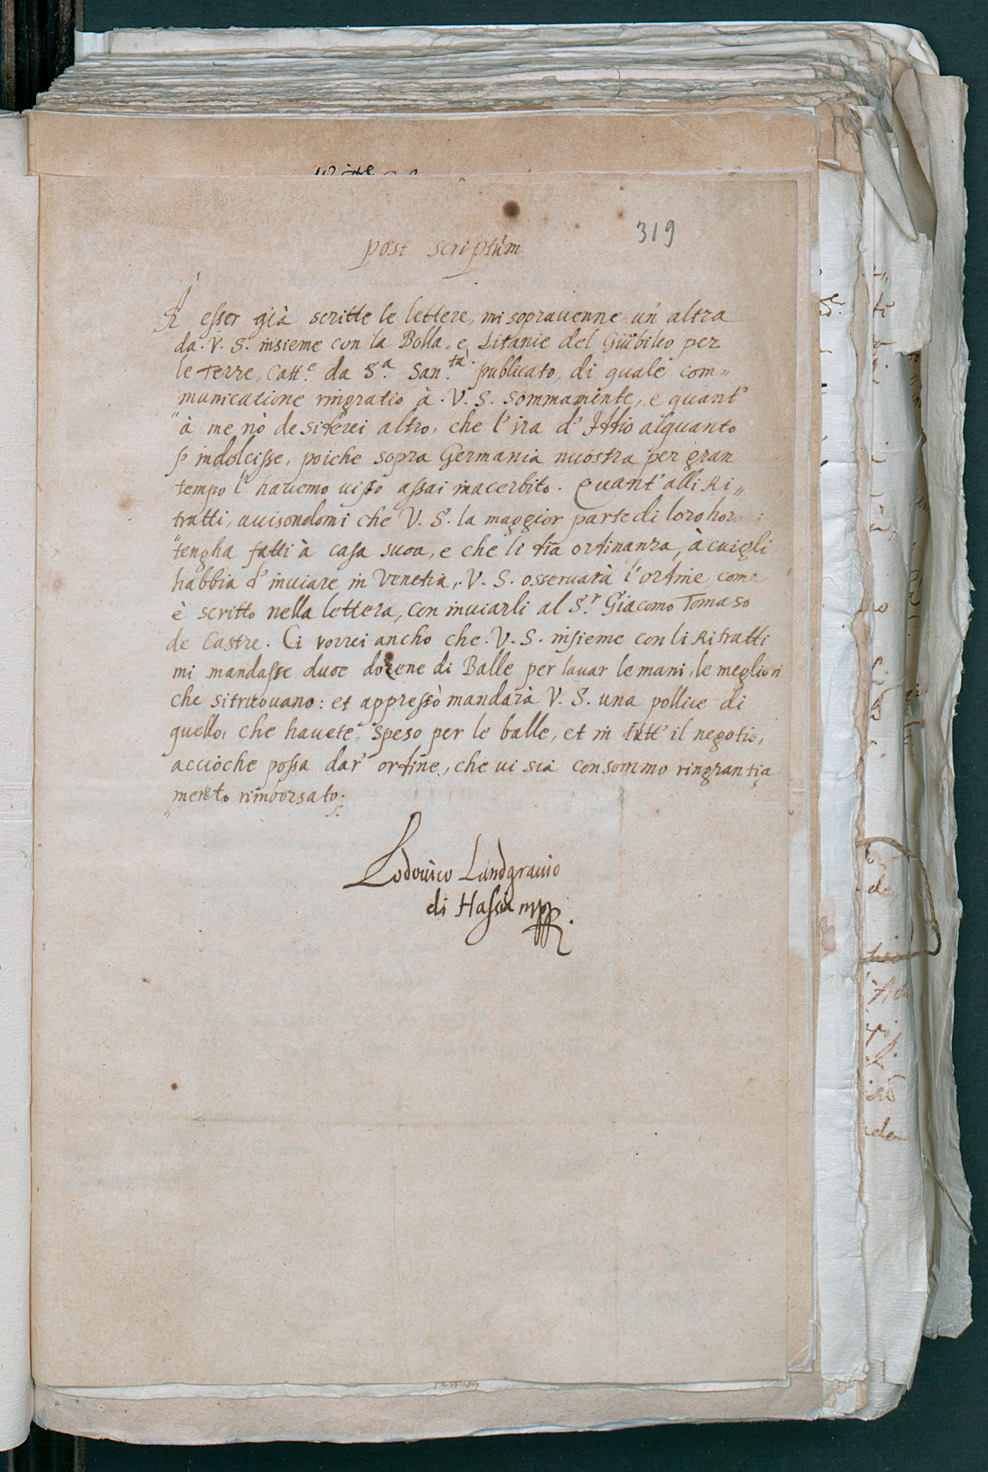 319
post scriptum
A esser già scritte le lettere, mi sopravenne un' altra
da. V. S. insieme con la Bolla, e Litanie del Giubileo per
le Terre, Catt.e da S.a San.tà publicato, di quale com„
municatione ringratio à. V. S. sommamente, e quant'
à me nò desiderei altro, che l'ira d'Iddio alquanto
s' indolcisse, poiche sopra Germania nuostra per gran
tempo l' havemo visto assai inacerbito. Quant' alli Ri„
tratti, avisondomi che V. S. la maggior parte di loro hor
tengha fatti à casa suoa, e che li dia ordinanza, à cui gli
habbia d' inviare in Venetia, V. S. osservarà l'ordine come
è scritto nella lettera, con inviarli al S.r Giacomo Tomaso
de Castre. Ci vorrei ancho che. V. S. insieme con li Ritratti
mi mandasse duoe dozene di Balle per lavar le mani, le megliori
che si truovano: et appressò mandarà V. S. una pollice di
quello, che havete speso per le balle, et in tutt' il negotio,
acciòche possa dar' ordine, che vi sia con sommo ringrantia
mento rimborsato.
Lodovico Landgravio
di Hassia mppr.